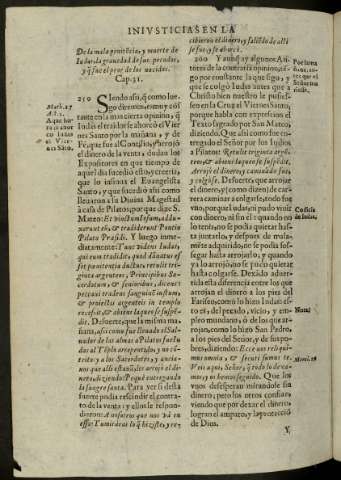 INIVSTICIAS EN LA
De la mala penitẽcia, y muerte de
Iudas, la grauedad de sus pecados,
y q̃ fue el peor de los nacidos.
Cap. 31.
Math. 27
259 Siendo assi, q̃ como lue-
go diremos, como y cõs-
tante en la mas cierta opinion, q̃
Iudas el traidor se ahorcò el Vier
nes Santo por la mañana, y de
Fè, que fue al Concilio, y arrojò
el dinero de la venta, dudan los
Expositores en que tiempo de
aquel dia sucediò esto, y creeria,
que lo insinua el Euangelista
Santo, y que sucediò assi como
lleuaron a su Diuina Magestad
à casa de Pilatos; por que dize S.
Mateo: Et vinctum eum, addu-
xerunt eũ, & tradiderunt Pontio
Pilato Præsidi. Y luego imme-
diatamente: Tunc videns Iudas,
qui eum tradidit, quod damnatus es-
set pœnitentia ductus, retulit tri-
ginta argenteos, Principibus Sa-
cerdotum, & senioribus, dicens:
peccaui tradens sanguinẽ iustum,
& proiectis argenteis in templo
recessit, & abiens laqueo se suspẽ-
dit. Desuerte, que la misma ma-
ñana, assi como fue lleuado el Sal-
uador de las almas a Pilatos fuesse
Iudas al Tẽplo arrepentido, y no cõ-
trito, y a los Sacerdotes, y ancia-
nos que alli estauã, les arrojò el di-
nero, diziendo: Pequè entregando
la sangre santa. Para ver si desta
suerte podia rescindir el contra-
to de la venta: y ellos le respon-
dieron: A nosotros que nos và en
esso? Tu miraràs lo q̃ hiziste, y re-
cibieron el dinero, y saliendo de alli
se fue, y se ahorcò.
260 Y aunq̃ ay algunos Au-
tores de la contraria opinion, tẽ-
go por constante la que sigo, y
que se colgò Iudas antes que a
Christo bien nuestro le pusies-
sen en la Cruz el Viernes Santo,
porque habla con expression el
Texo sagrado por San Mateo,
diziendo: Que assi como fue en-
tregado el Señor por los Iudios
a Pilatos: Retulit triginta argen-
teos, & abiens laqueo se suspẽdit.
Arrojò el dinero, y caminãdo fue,
y colgose. Desuerte, que arrojar
el dinero, y (como dizen) de car-
rera caminar a colgarse, todo fue
vno, porque Iudas, ni pudo viuir
con dinero, ni sin èl: y quando no
lo tenia, no se podia quietar has-
ta juntarlo, y despues de mala-
mẽte adquirido, no se podia sos-
segar hasta arrojarlo; y quando
ya lo arrojò, no se pudo quietar
hasta colgarse. Dexãdo aduer-
tida esta diferencia entre los que
arrojan el dinero a los pies del
Fariseo, como lo hizo Iudas, es-
to es, del pecado, vicio, y em-
pleo mundano, ò de los que ar-
rojan, como lo hizo San Pedro,
a los pies del Señor, y de su tem-
plo, diziendo: Ecce nos reliqui-
mus omnia, & secuti sumus te.
Veis aqui, Señor, q̃ todo lo dexa-
mos, y os hemos seguido. Que los
vnos desesperan mirandose sin
dinero, pero los otros confian,
viendo que por dexar el dinero,
logran el amparo, y la protecciõ
de Dios.
Y
Nota.